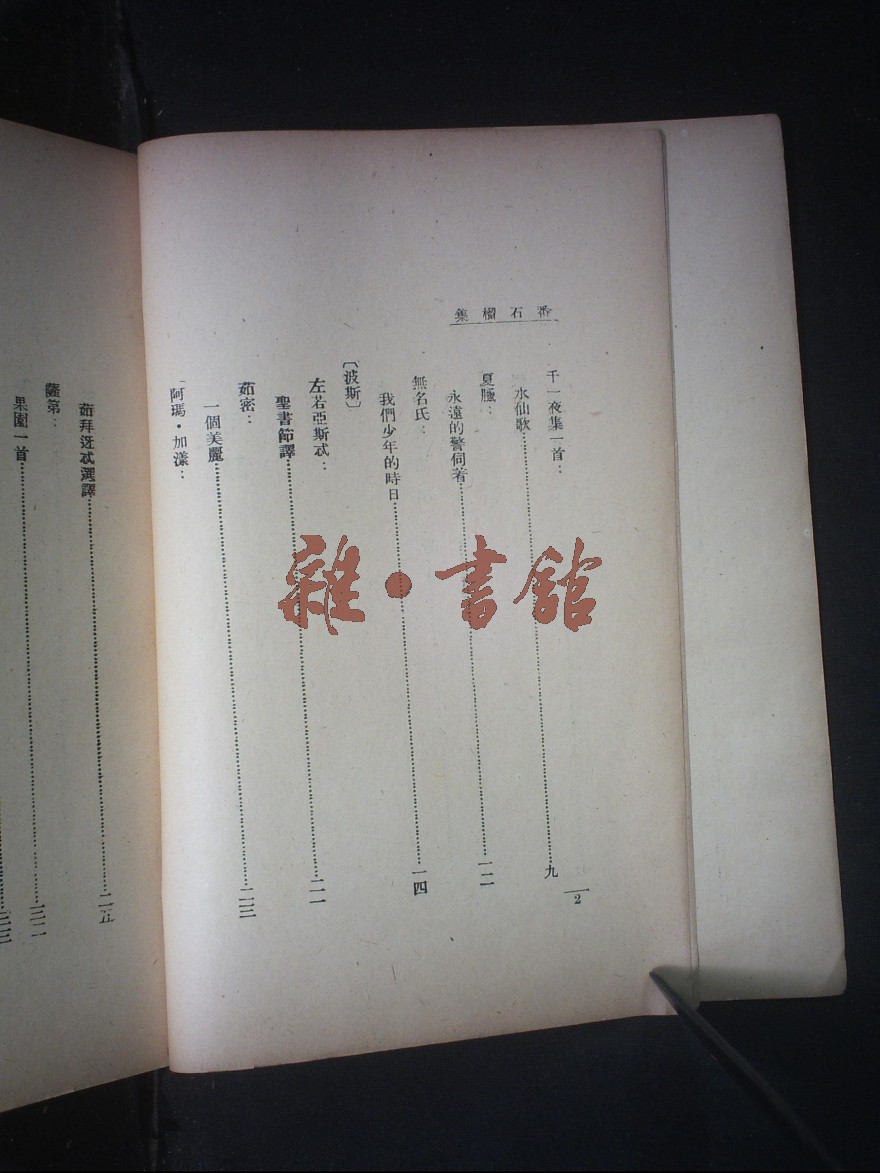 番石榴集
千一夜集一首：
水仙歌……九
夏臘：
永遠的警伺着……一二
無名氏：
我們少年的時日……一四
〔波斯〕
左若亞斯忒：
聖書節譯……二一
茹密：
一個美麗……二三
阿瑪·加漾：
茹拜迓忒選譯……二五
薩第：
果園一首
2
雜·書館